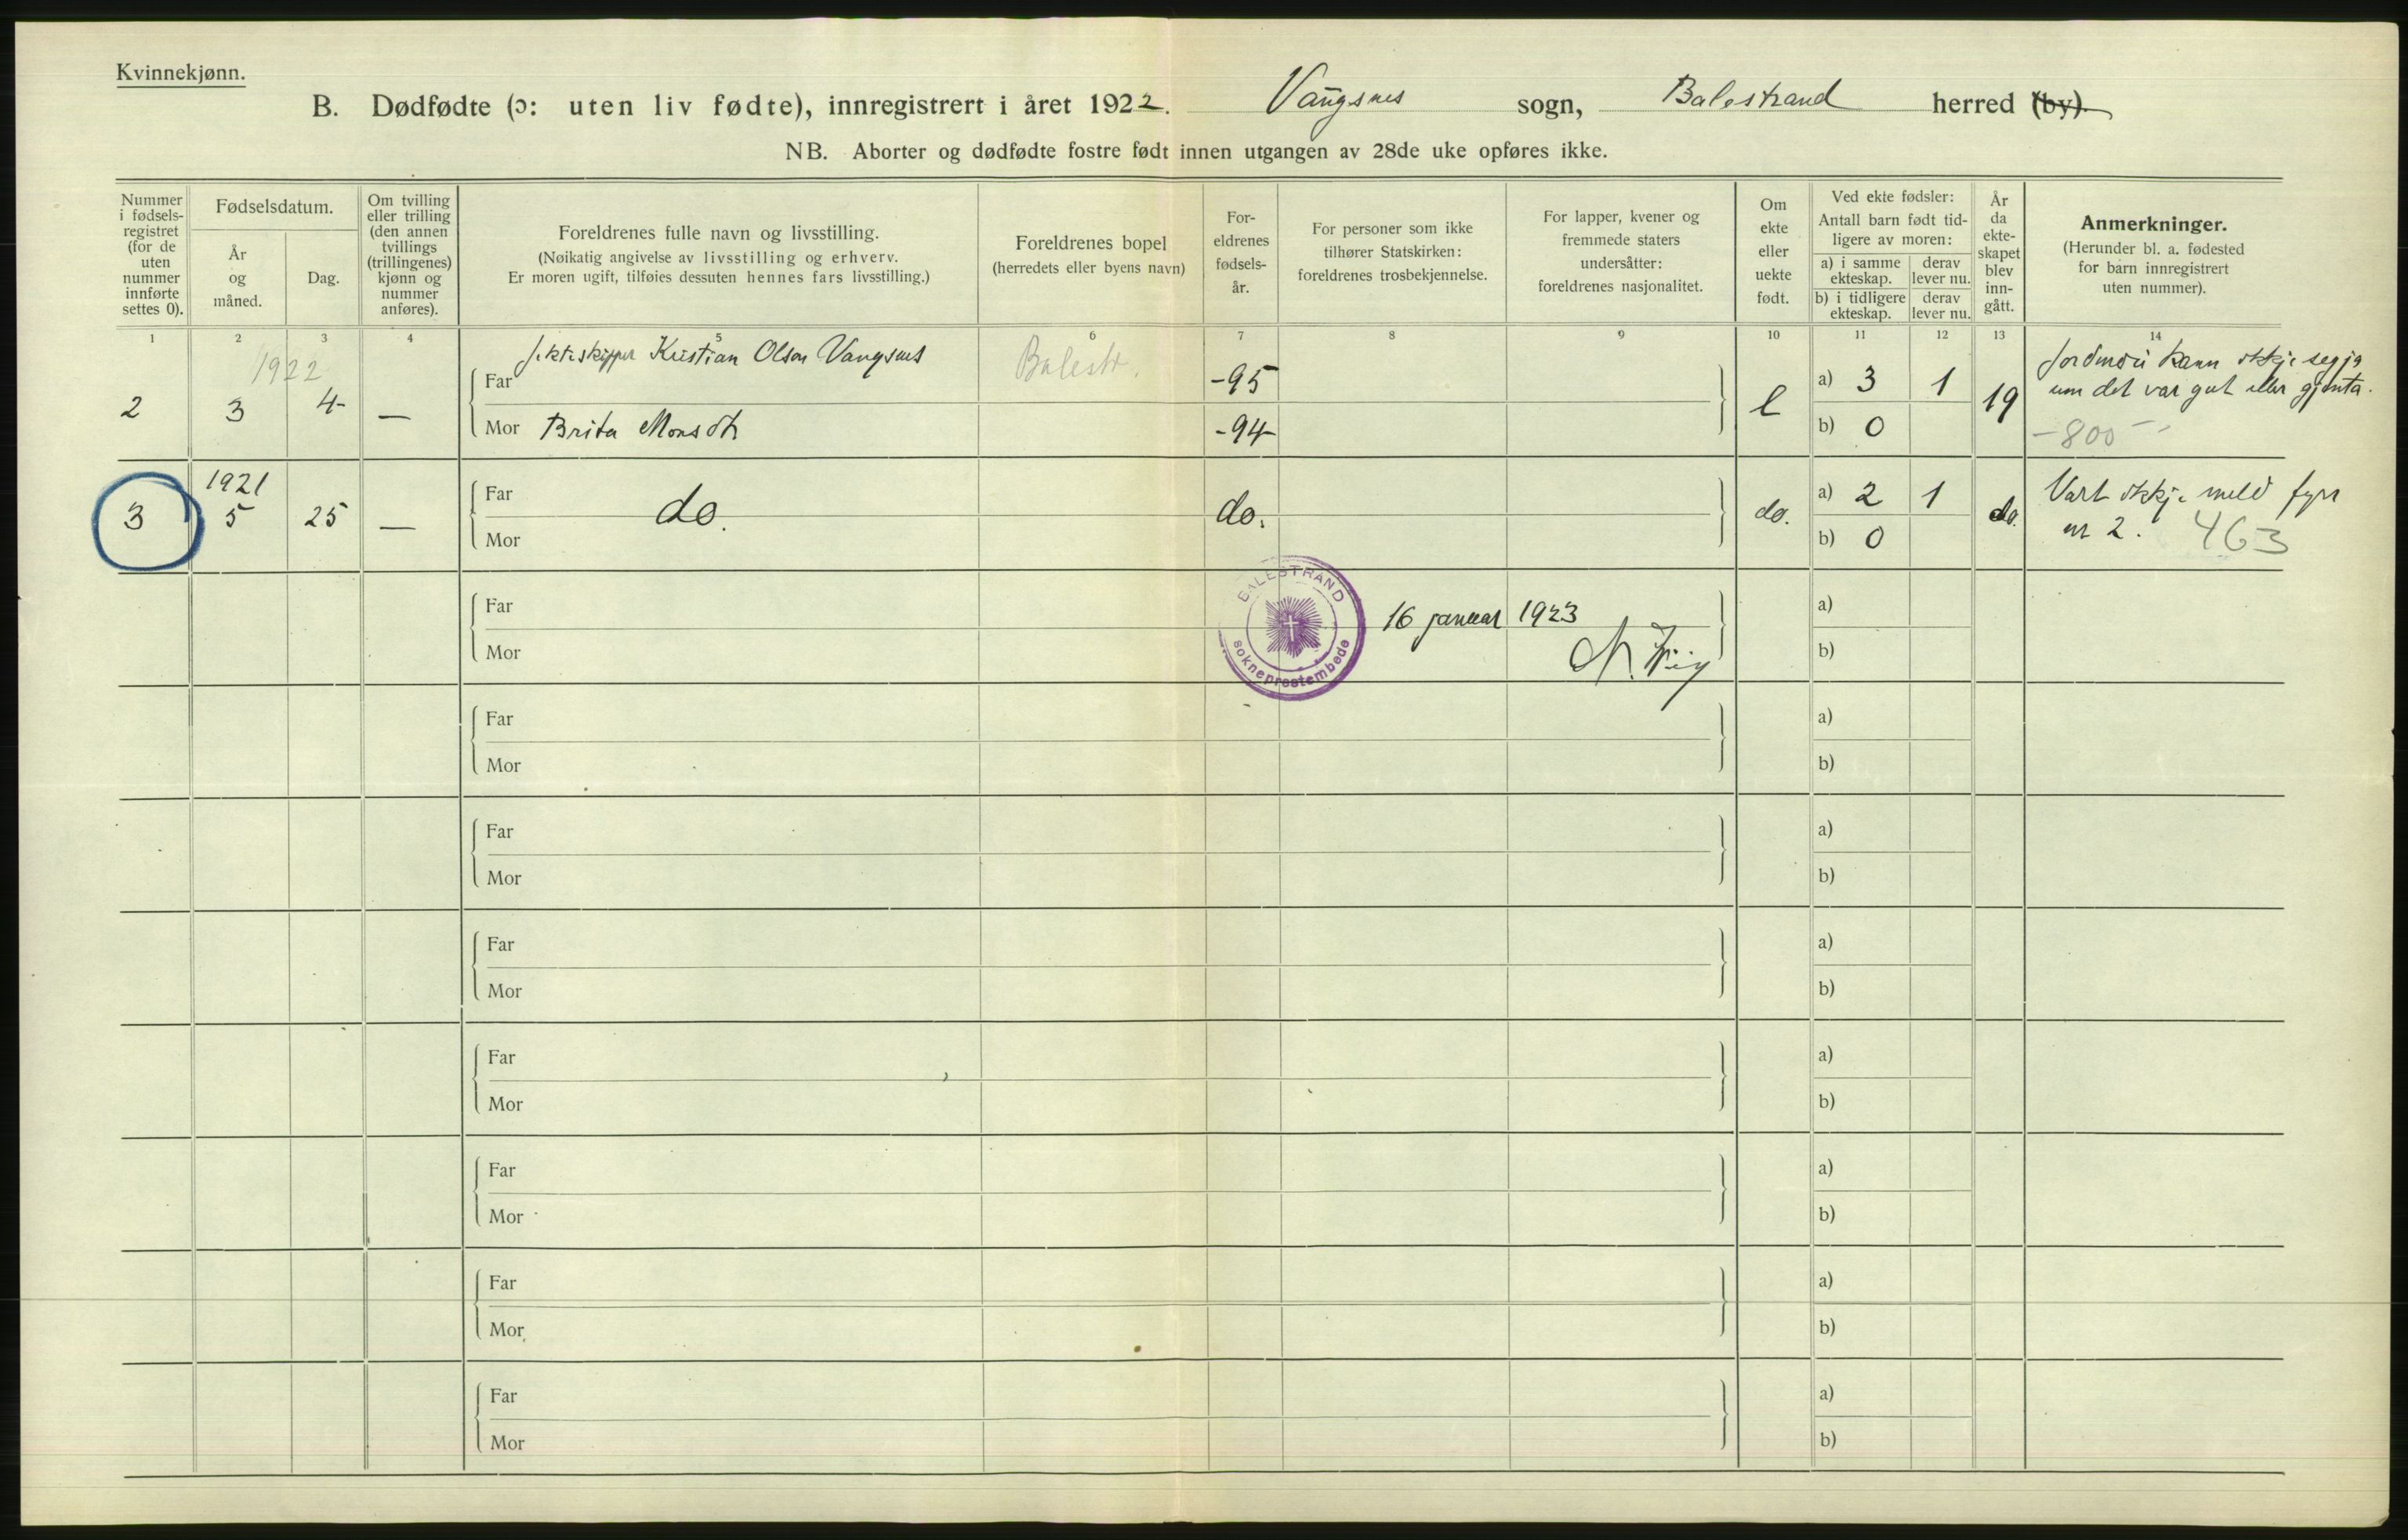 Kvinnekjønn.
B. Dødfødte (ɔ: uten liv fødte), innregistrert i året 1922. Vangsnes sogn, Balestrand herred (by).
NB. Aborter og dødfødte fostre født innen utgangen av 28de uke opføres ikke.
Nummer
i fødsels-
registret
(for de
uten
nummer
innførte
settes 0).
Fødselsdatum.
År
og
måned.
Dag.
Om tvilling
eller trilling
(den annen
tvillings
(trillingenes)
kjønn og
nummer
anføres).
Foreldrenes fulle navn og livsstilling.
(Nøikatig angivelse av livsstilling og erhverv.
Er moren ugift, tilføies dessuten hennes fars livsstilling.)
Foreldrenes bopel
(herredets eller byens navn)
For-
eldrenes
fødsels-
år.
For personer som ikke
tilhører Statskirken:
foreldrenes trosbekjennelse.
For lapper, kvener og
fremmede staters
undersåtter:
foreldrenes nasjonalitet.
Om
ekte
eller
uekte
født.
Ved ekte fødsler:
Antall barn født tid-
ligere av moren:
a) i samme
ekteskap.
derav
lever nu.
b) i tidligere
ekteskap.
derav
lever nu.
År
da
ekte-
skapet
blev
inn-
gått.
Anmerkninger.
(Herunder bl. a. fødested
for barn innregistrert
uten nummer).
1 2 3 4 5 6 7 8 9 10 11 12 13 14
1922
2 3 4 —
Far Jekteskipper Kristian Olson Vangsnes Balestr. -95
Mor Brita Monsdtr -94
e
a) 3 1
b) 0
19
Jordmori kann ikkje segja
um det var gut eller gjenta.
-800-
1921
3 5 25 —
Far do. do.
Mor
do.
a) 2 1
b) 0
do.
Vart ikkje meld fyrr
nr 2. 463
BALESTRAND
sokneprestembede
16 januar 1923
Far a)
Mor b)
Far a)
Mor b)
Far a)
Mor b)
Far a)
Mor b)
Far a)
Mor b)
Far a)
Mor b)
Far a)
Mor b)
Far a)
Mor b)